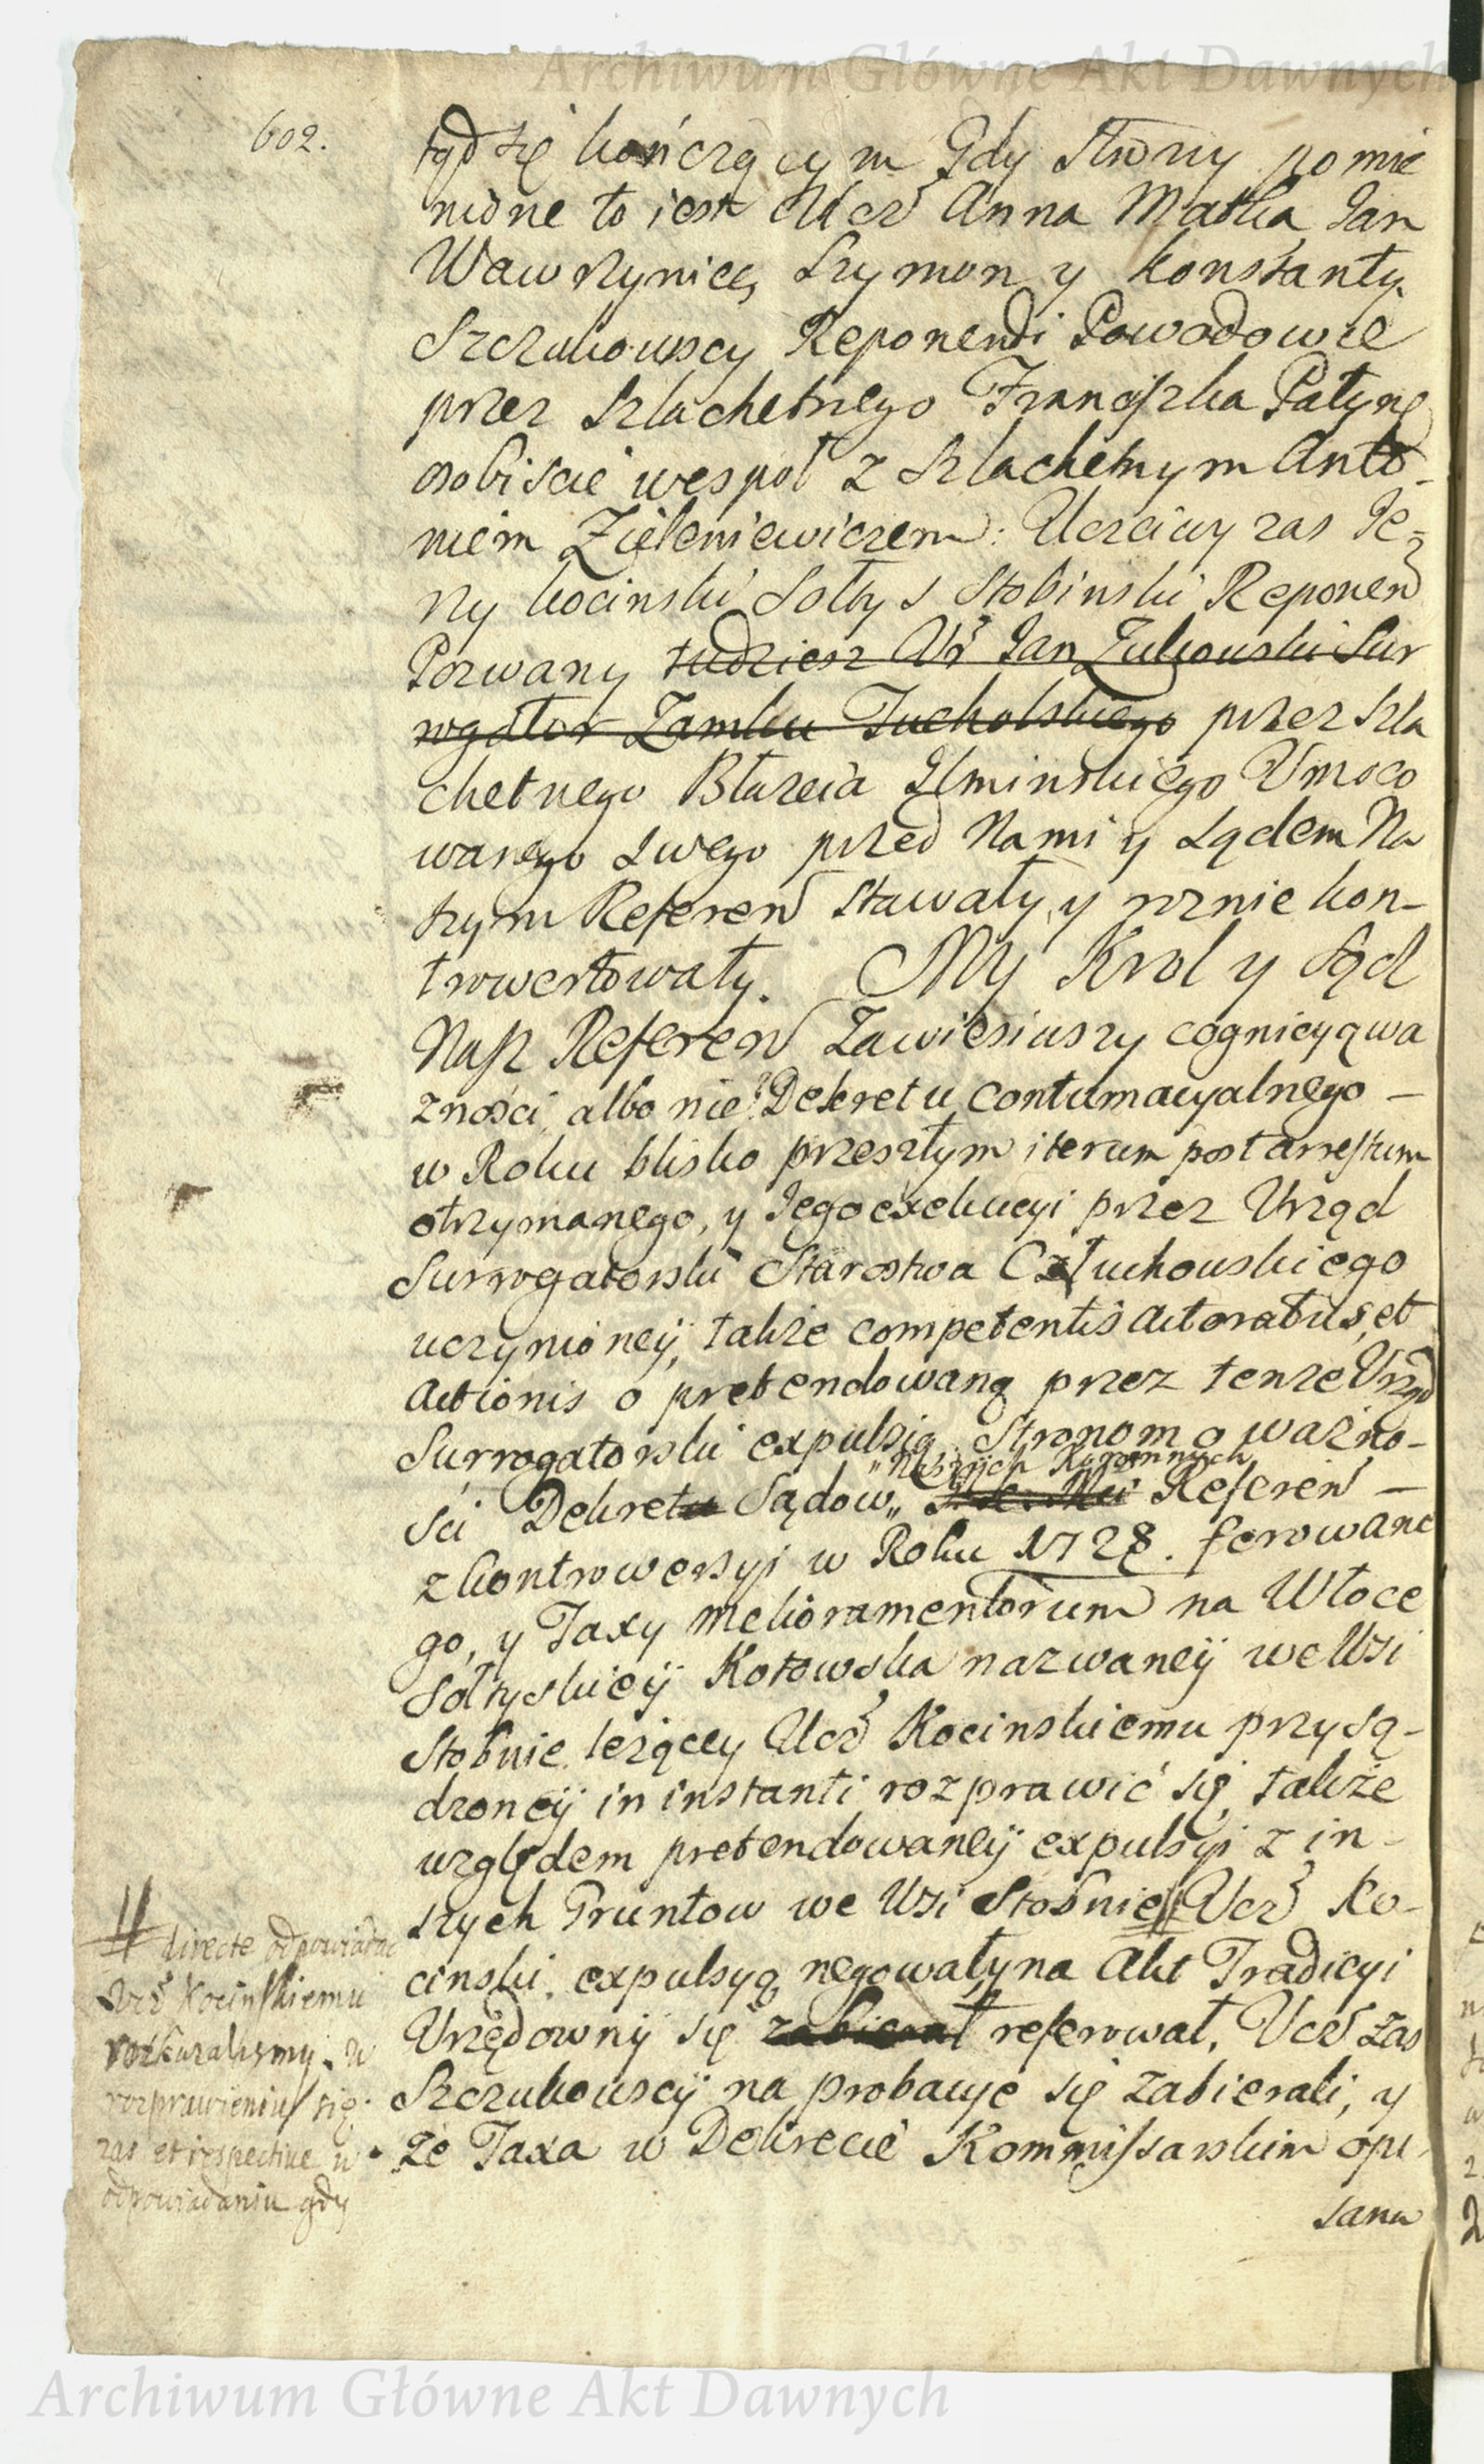 Archiwum Główne Akt Dawnych
602.
tąd się kończącym Gdy Strony pomie
nione to iest Ucz Anna Matka Jan
Wawrzyniec, Szymon y Konstanty
Szczukowscy Reponendi Powodowie
przez Szlachetnego Franciszka Patynę
osobiscie wespoł z Szlachetnym Anto-
niem Zieleniewiczem: Uczciwy zas Je-
rzy Kocinski Sołtys Stobinski Reponen
Pozwany tudziesz Ur Jan Zulkowski Sur
rogator Zamku Tucholskiego przez Szla
chetnego Błazeia Glminskiego Umoco
wanego swego przed Nami y Sądem Na
szym Referen stawały, y roznie kon-
trowertowały. My Krol y Sąd
Nasz Referen Zawiesiwszy cognicyą wa
zności albo nie Dekretu contumacyalnego -
w Roku blisko przeszłym iterum post arrestum
otrzymanego, y Jego exekucyi przez Urząd
Surrogatorski Starostwa Człuchowskiego
uczynioneÿ, także competentis actoratus, et
actionis o pretendowaną przez tenze Urząd
Surrogatorski expulsią Stronom o wazno-
" Naszych Koronnych
ści Dekretu Sądow " Referen -
z kontrowersyi w Roku 1728. ferowane
go, y Taxy melioramentorum na Włoce
Sołtyskieÿ Kotowska nazwaneÿ we Wsi
Stobnie leżącey Ucz Kocinskiemu przysą-
dzoneÿ in instanti rozprawić się, także
względem pretendowaneÿ expulsyi z in-
szych Gruntow we Wsi Stobnie // Ucz Ko-
cinski expulsyą negowały na Akt Tradicyi
Urzędowny się zabierał referował, Ucz zas
Szczukowscÿ na probacye się zabierali, y
że Taxa w Dekrecie Kommissarskim opi
sana
// directe odpowiadac
Ucz Kocinskiemu
roskazalismy. w
rozprawieniu się
zas et respective w
odpowiadaniu gdy
Archiwum Główne Akt Dawnych